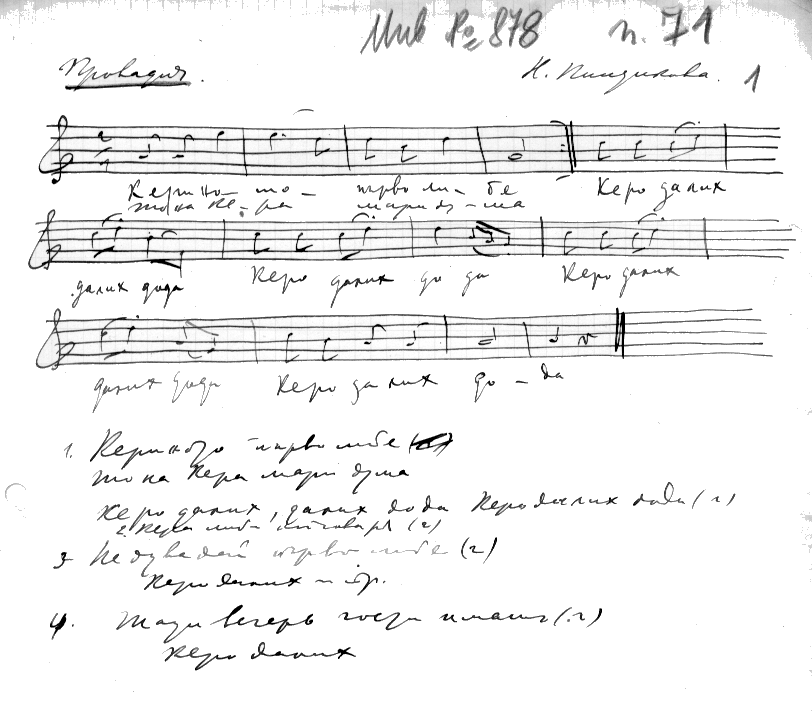 Инв № 878 п. 71
Провадия. Н. Пиндикова. 1
Керино- то- първо ли- бе Керо далих
мари ду- ма
далих дода Керо далих до да Керо далих
далих дода Керо да лих до - да
1. първо либе
то на Кера мари дума
Керо далих, далих дода Керо далих дода (2)
2. Кера (2)
3 първо либе (2)
Керо далих и др.
4. Тази вечер гости имаш (2)
Керо далих